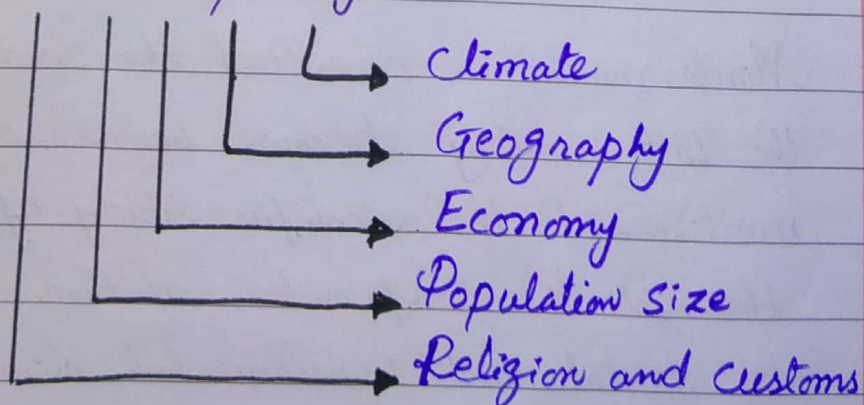 Climate
Geography
Economy
Population size
Religion and customs